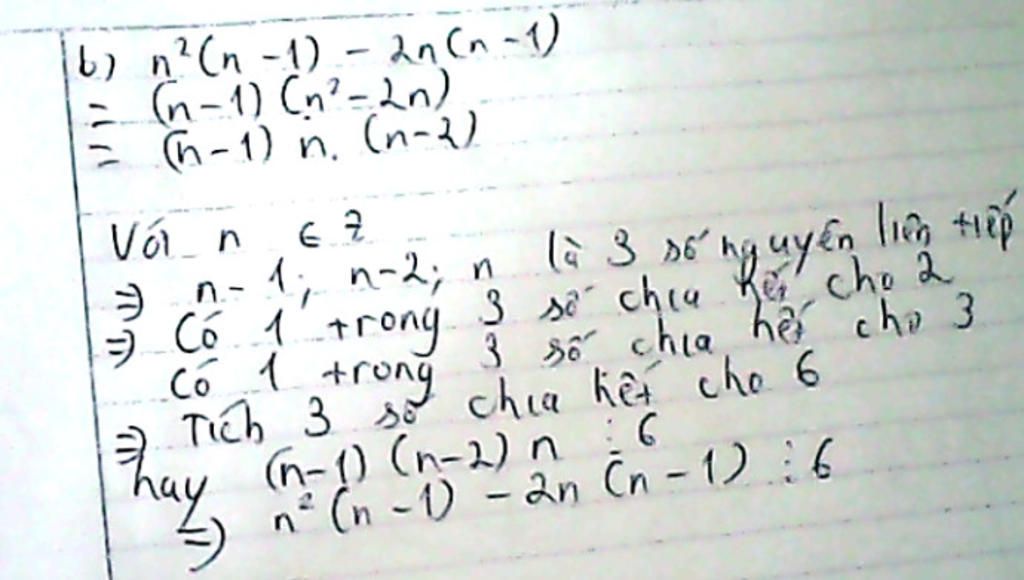 b) n²(n - 1) - 2n(n - 1)
= (n - 1)(n² - 2n)
= (n - 1) n. (n - 2)
Với n ∈ Z
⇒ n - 1; n - 2; n là 3 số nguyên liên tiếp
⇒ Có 1 trong 3 số chia hết cho 2
Có 1 trong 3 số chia hết cho 3
⇒ Tích 3 số chia hết cho 6
hay (n - 1)(n - 2) n ⋮ 6
⇒ n² (n - 1) - 2n (n - 1) ⋮ 6